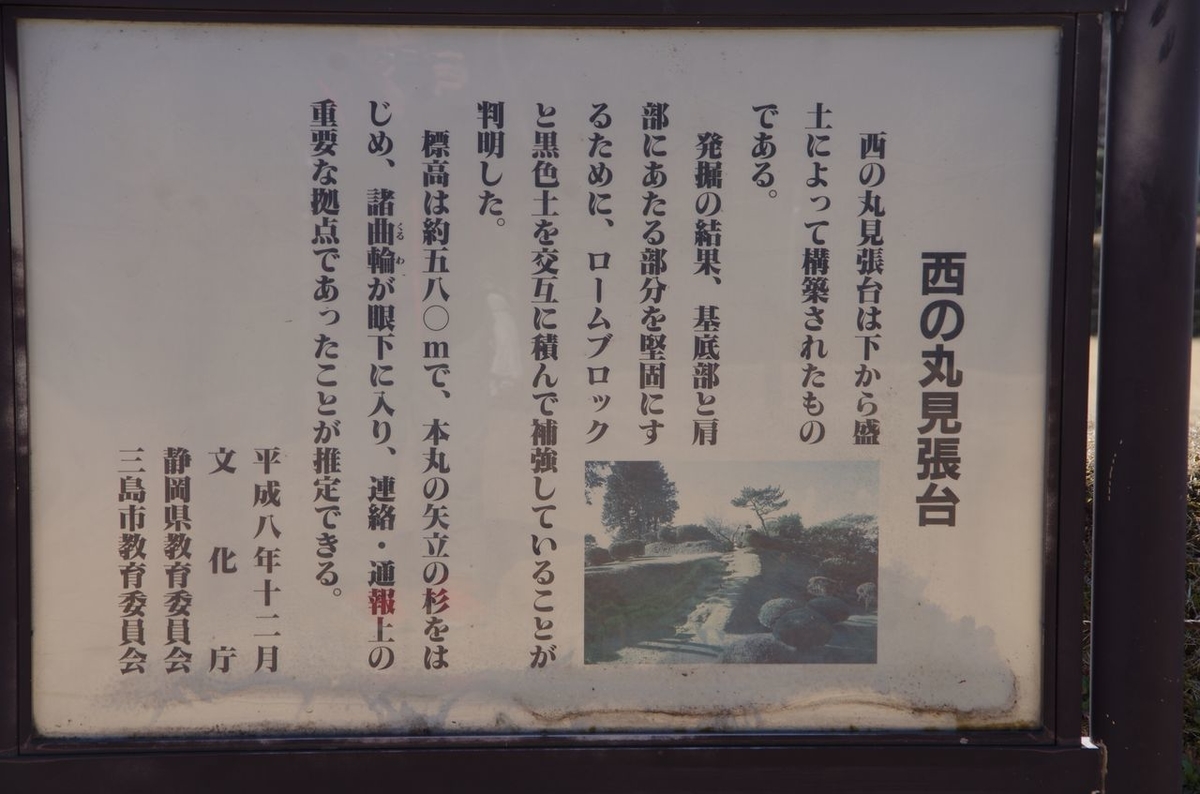 西の丸見張台
西の丸見張台は下から盛
土によって構築されたもの
である。
発掘の結果、基底部と肩
部にあたる部分を堅固にす
るために、ロームブロック
と黒色土を交互に積んで補強していることが
判明した。
標高は約五八〇mで、本丸の矢立の杉をは
じめ、諸曲輪が眼下に入り、連絡・通報上の
くるわ
重要な拠点であったことが推定できる。
平成八年十二月
文化庁
静岡県教育委員会
三島市教育委員会